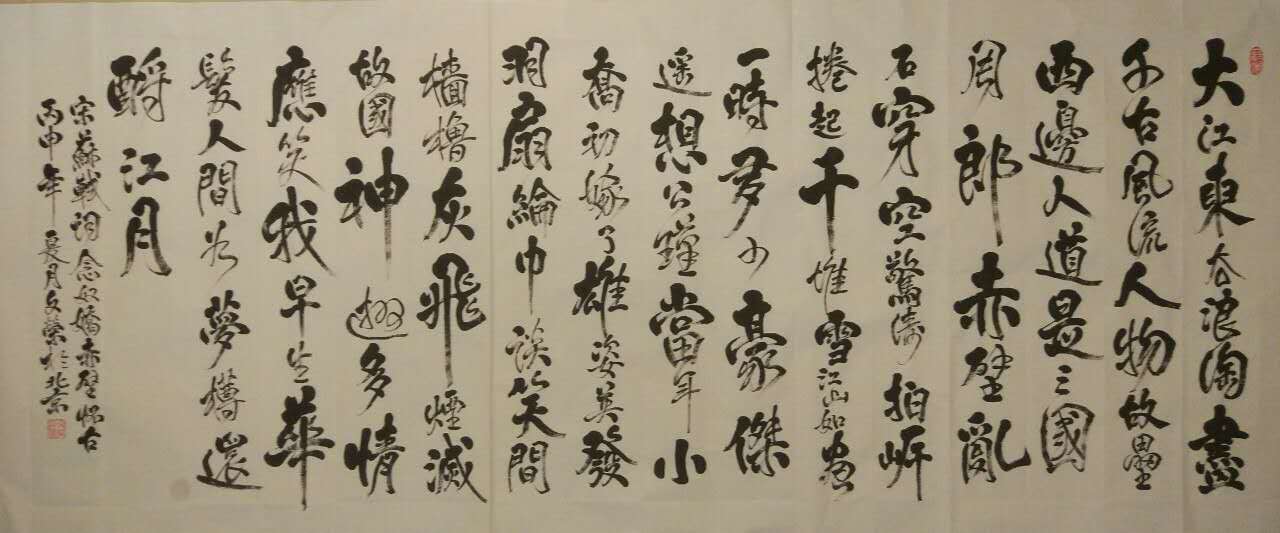 大江東去浪淘盡
千古風流人物故壘
西邊人道是三國
周郎赤壁亂
石穿空驚濤拍岸
捲起千堆雪江山如畫
一時多少豪傑
遥想公瑾當年小
喬初嫁了雄姿英發
羽扇綸巾談笑間
檣櫓灰飛煙滅
故國神遊多情
應笑我早生華
髮人間如夢樽還
酹江月
宋蘇軾詞念奴嬌赤壁懷古
丙申年夏月文榮於北京